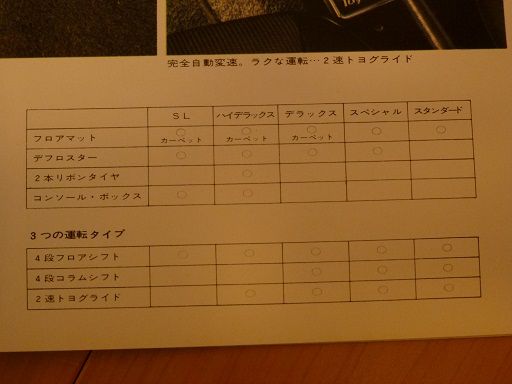 完全自動変速。ラクな運転…2速トヨグライド
SL ハイデラックス デラックス スペシャル スタンダード
フロアマット ○カーペット ○カーペット ○カーペット ○ ○
デフロスター ○ ○ ○ ○
2本リボンタイヤ ○
コンソール・ボックス ○ ○
3つの運転タイプ
4段フロアシフト ○ ○ ○ ○ ○
4段コラムシフト ○ ○ ○
2速トヨグライド ○ ○ ○ ○